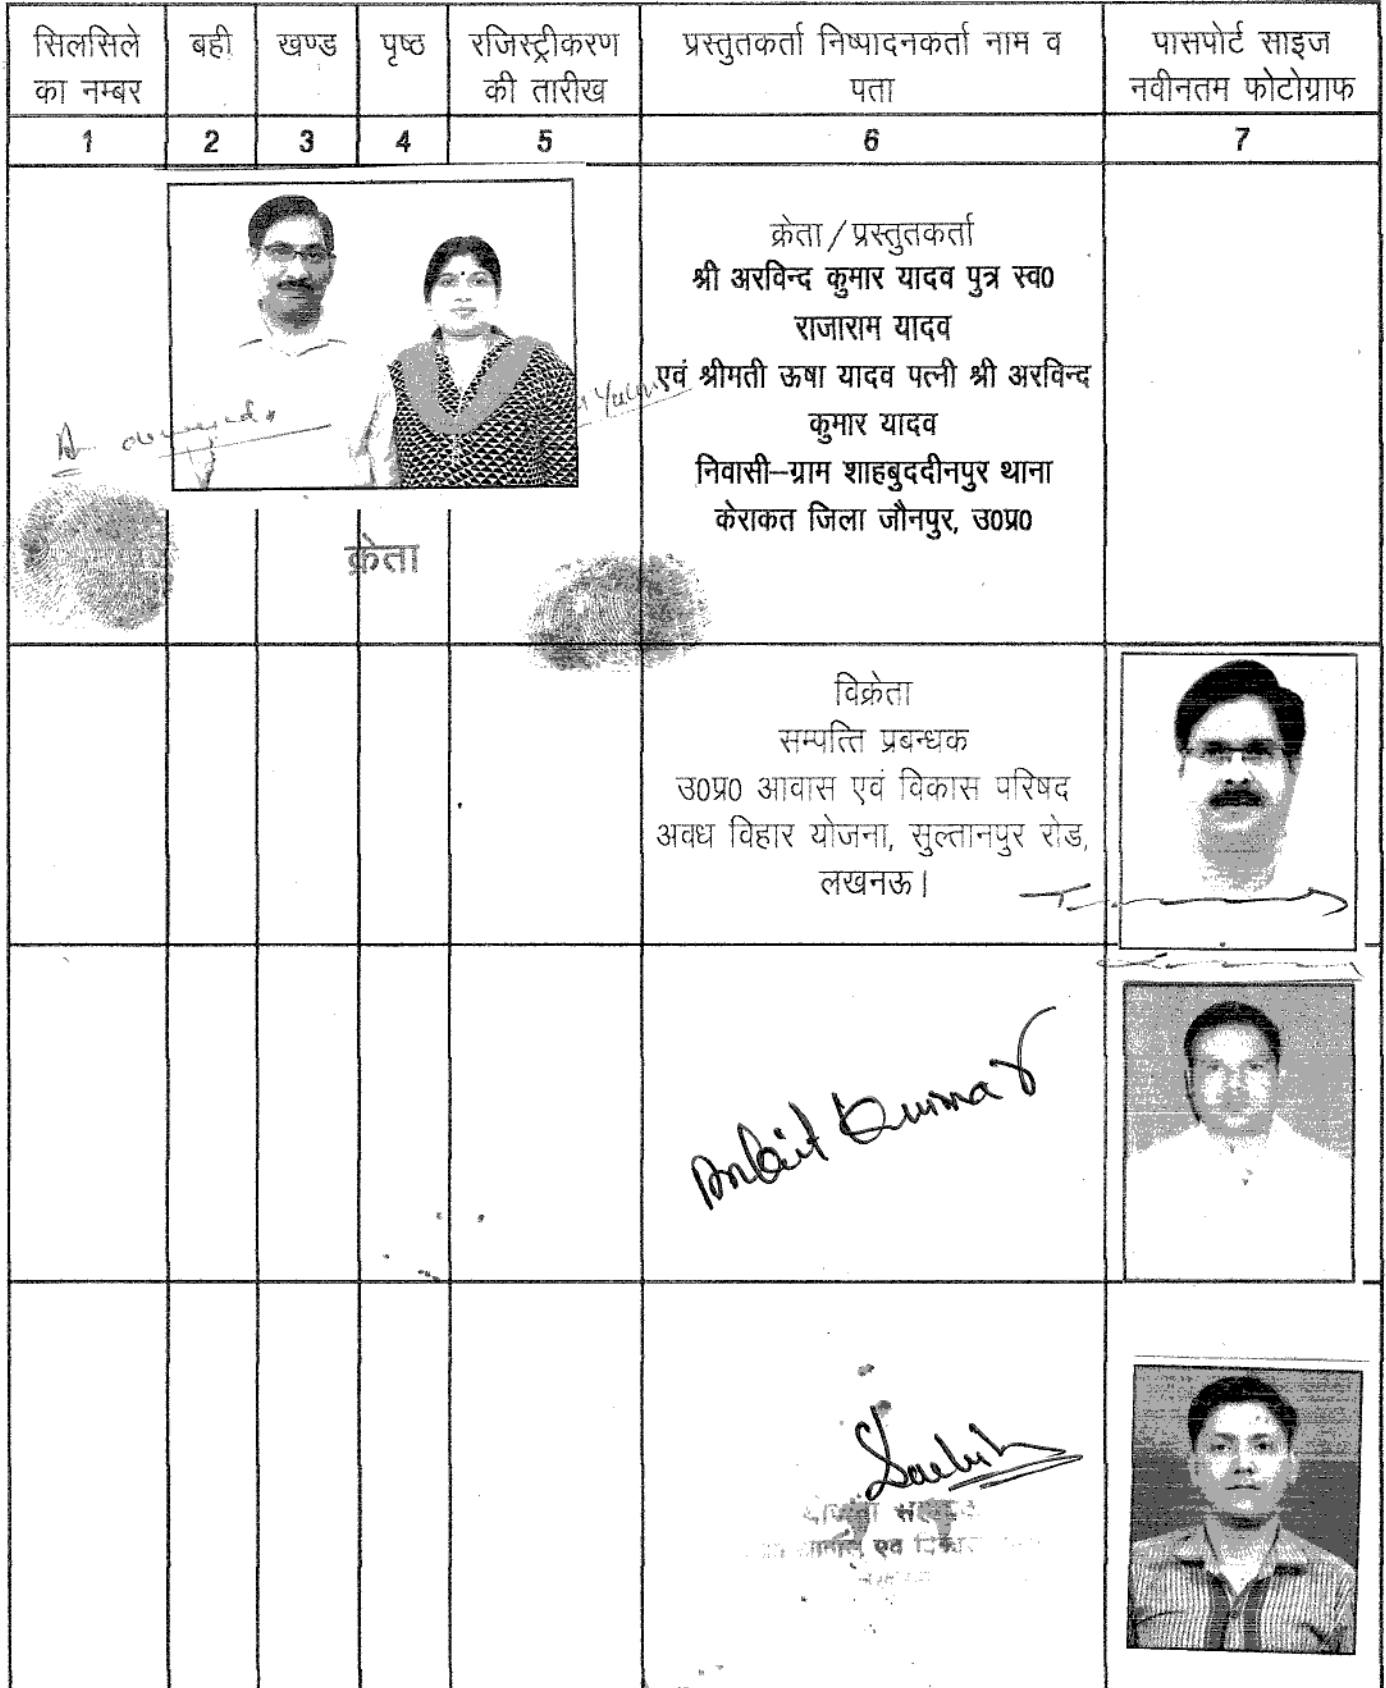 सिलसिले का नम्बर
बही
खण्ड
पृष्ठ
रजिस्ट्रीकरण की तारीख
प्रस्तुतकर्ता निष्पादनकर्ता नाम व पता
पासपोर्ट साइज नवीनतम फोटोग्राफ
1 2 3 4 5 6 7
क्रेता/प्रस्तुतकर्ता
श्री अरविन्द कुमार यादव पुत्र स्व0
राजाराम यादव
एवं श्रीमती ऊषा यादव पत्नी श्री अरविन्द
कुमार यादव
निवासी–ग्राम शाहबुददीनपुर थाना
केराकत जिला जौनपुर, उ0प्र0
क्रेता
विक्रेता
सम्पत्ति प्रबन्धक
उ0प्र0 आवास एवं विकास परिषद
अवध विहार योजना, सुल्तानपुर रोड,
लखनऊ।
Ankit Kumar
एवं